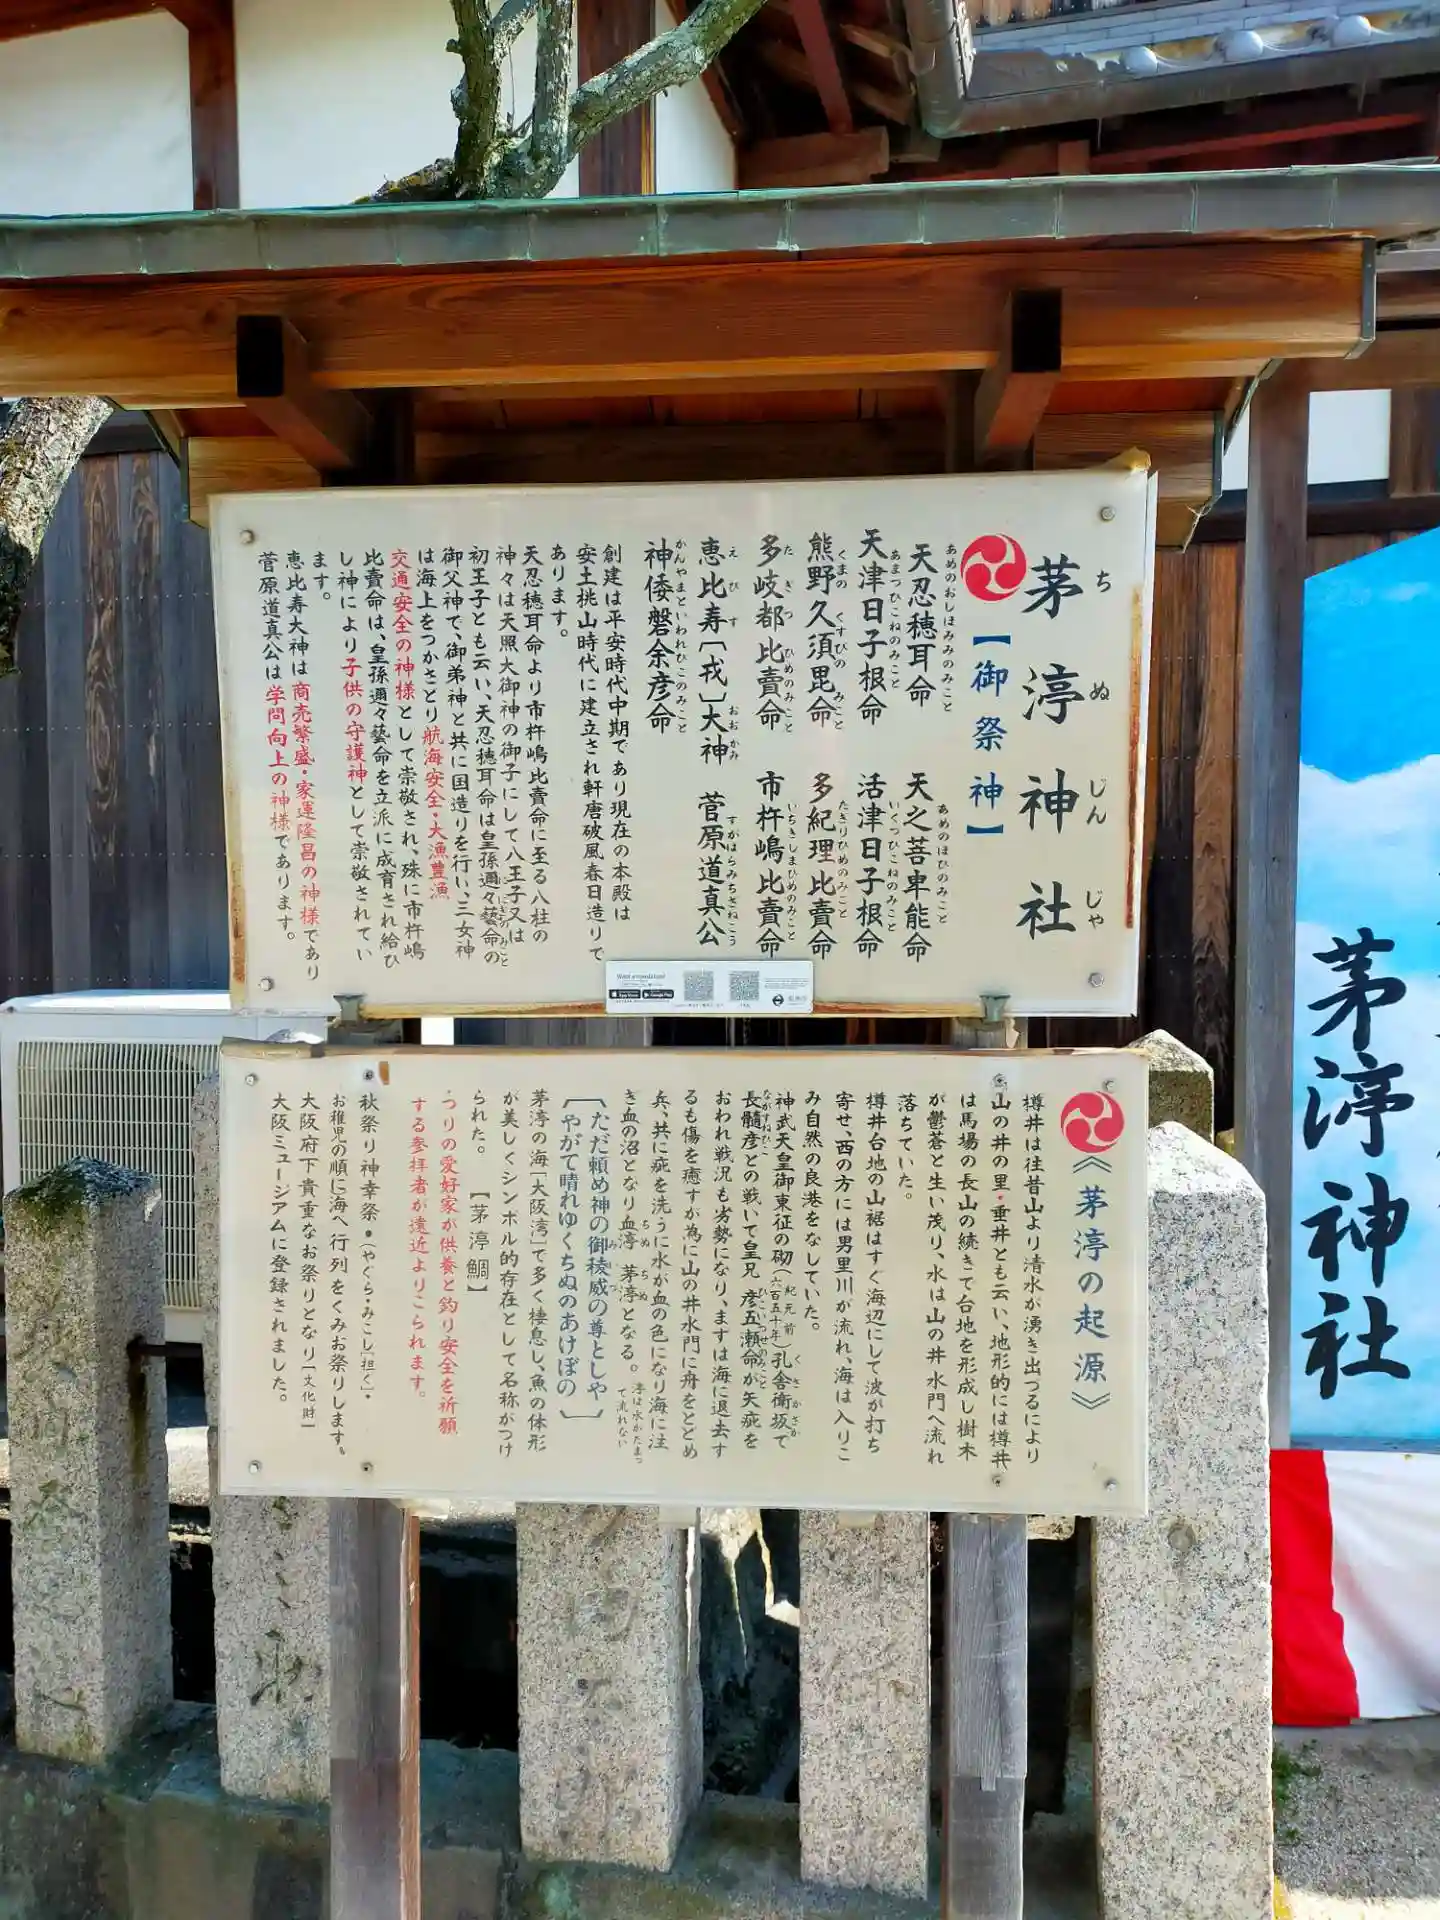 茅渟神社
ちぬじんじゃ
【御祭神】
天忍穂耳命
あめのおしほみみのみこと
天之菩卑能命
あめのほひのみこと
天津日子根命
あまつひこねのみこと
活津日子根命
いくつひこねのみこと
熊野久須毘命
くまのくすびのみこと
多紀理比賣命
たきりひめのみこと
多岐都比賣命
たぎつひめのみこと
市杵嶋比賣命
いちきしまひめのみこと
恵比寿〔戎〕大神
えびすおおかみ
菅原道真公
すがはらみちざねこう
神倭磐余彦命
かんやまといわれひこのみこと
創建は平安時代中期であり現在の本殿は
安土桃山時代に建立され軒唐破風春日造りで
あります。
天忍穂耳命より市杵嶋比賣命に至る八柱の
神々は天照大御神の御子にして八王子又は
初王子とも云い、天忍穂耳命は皇孫邇々藝命の
御父神で、御弟神と共に国造りを行い、三女神
は海上をつかさどり航海安全・大漁豊漁
交通安全の神様として崇敬され、殊に市杵嶋
比賣命は、皇孫邇々藝命を立派に成育され給ひ
し神により子供の守護神として崇敬されてい
ます。
恵比寿大神は商売繁盛・家運隆昌の神様であり
菅原道真公は学問向上の神様であります。
App Store
Google Play
《茅渟の起源》
樽井は往昔山より清水が湧き出づるにより
山の井の里・垂井とも云い、地形的には樽井
は馬場の長山の続きて台地を形成し樹木
が鬱蒼と生い茂り、水は山の井水門へ流れ
落ちていた。
樽井台地の山裾はすぐ海辺にして波が打ち
寄せ、西の方には男里川が流れ、海は入りこ
み自然の良港をなしていた。
神武天皇御東征の砌（紀元前六百五十年）孔舎衛坂で
くさかざか
長髄彦との戦いで皇兄 彦五瀬命が矢疵を
ながすねひこ
ひこいつせのみこと
おわれ戦況も劣勢になり、ますは海に退去す
るも傷を癒すが為に山の井水門に舟をとどめ
兵、共に疵を洗うに水が血の色になり海に注
ぎ血の沼となり血渟 茅渟となる。
ちぬ ちぬ
渟は水がたまって流れない
〔ただ頼め神の御稜威の尊としや
みいづ
やがて晴れゆくちぬのあけぼの〕
茅渟の海「大阪湾」で多く棲息し、魚の体形
が美しくシンボル的存在として名称がつけ
られた。【茅渟鯛】
つりの愛好家が供養と釣り安全を祈願
する参拝者が遠近よりこられます。
秋祭り神幸祭・(やぐら・みこし「担ぐ」・
お稚児の順に海へ行列をくみお祭りします。
大阪府下貴重なお祭りとなり「文化財」
大阪ミュージアムに登録されました。
茅渟神社